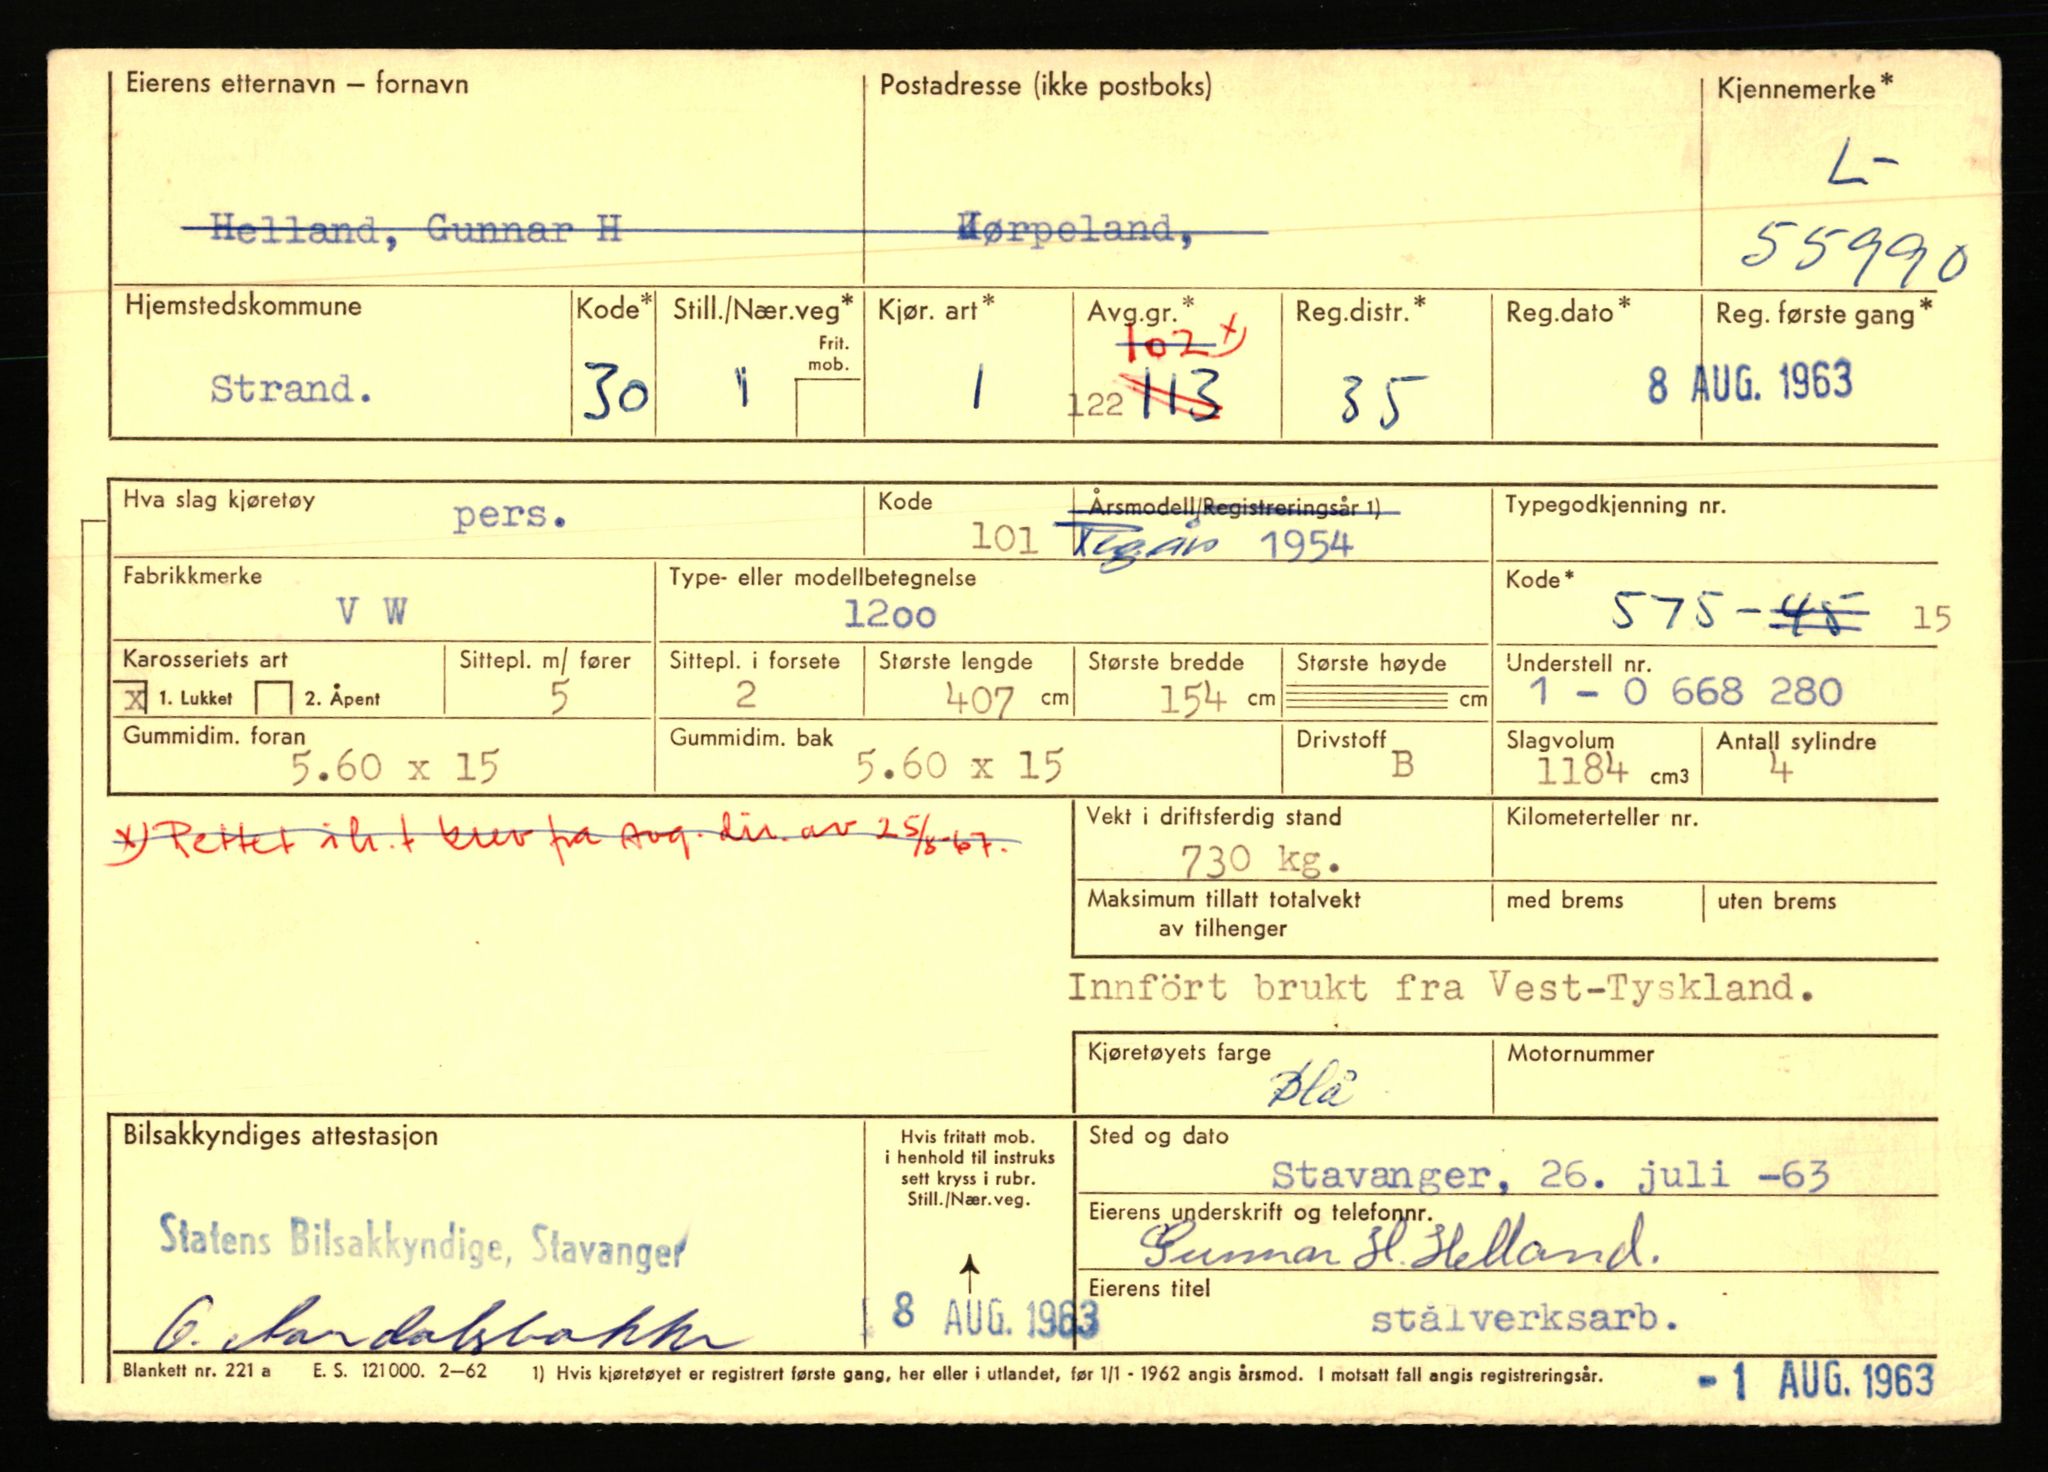 Eierens etternavn — fornavn Postadresse (ikke postboks) Kjennemerke*
L-
Helland, Gunnar H Jørpeland, 55990
Hjemstedskommune Kode* Still./Nær.veg* Kjør. art* Avg.gr.* Reg.distr.* Reg.dato* Reg. første gang*
Frit. mob. 102 x)
Strand. 30 1 1 122 113 35 8 AUG. 1963
Hva slag kjøretøy pers. Kode 101 Årsmodell/Registreringsår 1) Regår 1954 Typegodkjenning nr.
Fabrikkmerke Type- eller modellbetegnelse Kode*
V W 1200 575-45 15
Karosseriets art Sittepl. m/ fører Sittepl. i forsete Største lengde Største bredde Største høyde Understell nr.
x 1. Lukket 2. Åpent 5 2 407 cm 154 cm cm 1 - 0 668 280
Gummidim. foran Gummidim. bak Drivstoff Slagvolum Antall sylindre
5.60 x 15 5.60 x 15 B 1184 cm3 4
x) Rettet i h.t brev fra Avg. dir. av 25/8-67.
Vekt i driftsferdig stand Kilometerteller nr.
730 kg.
Maksimum tillatt totalvekt med brems uten brems
av tilhenger
Innfört brukt fra Vest-Tyskland.
Kjøretøyets farge Motornummer
Blå
Bilsakkyndiges attestasjon
Hvis fritatt mob.
i henhold til instruks
sett kryss i rubr.
Still./Nær.veg.
Sted og dato
Stavanger, 26. juli -63
Eierens underskrift og telefonnr.
Gunnar H. Helland.
Statens Bilsakkyndige, Stavanger
Eierens titel
8 AUG. 1963 stålverksarb.
Blankett nr. 221 a E. S. 121000. 2—62 1) Hvis kjøretøyet er registrert første gang, her eller i utlandet, før 1/1 - 1962 angis årsmod. I motsatt fall angis registreringsår.
- 1 AUG. 1963